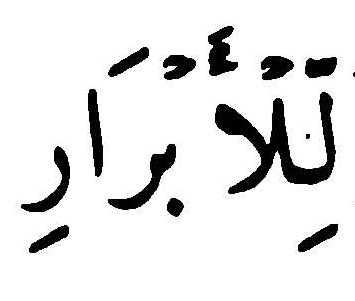 لِّلْأَبْرَارِ